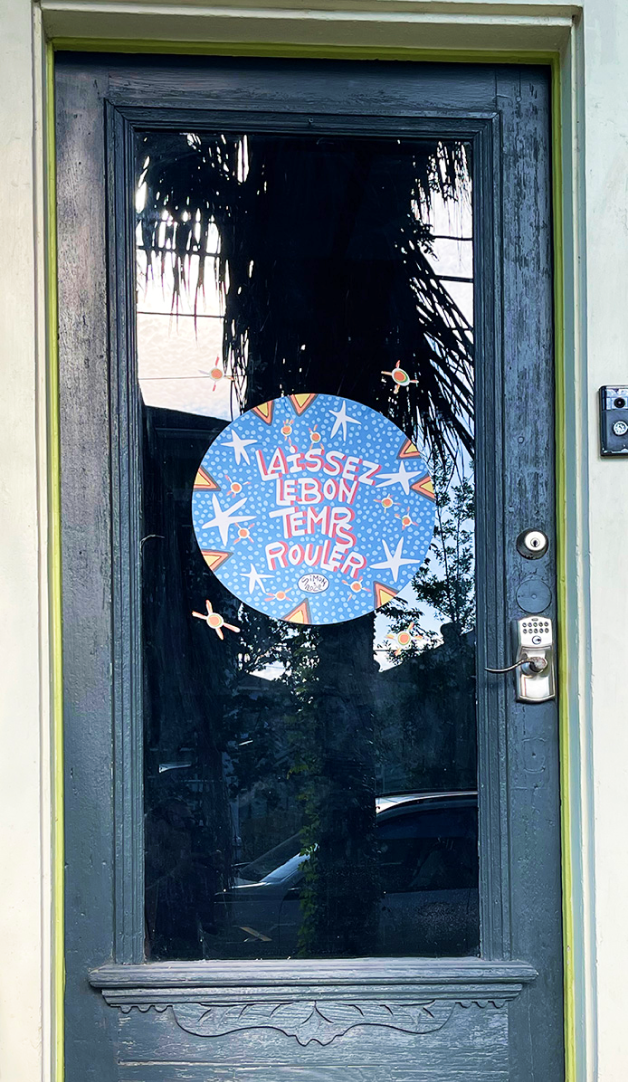 LAISSEZ
LEBON
TEMPS
ROULER
SIMON